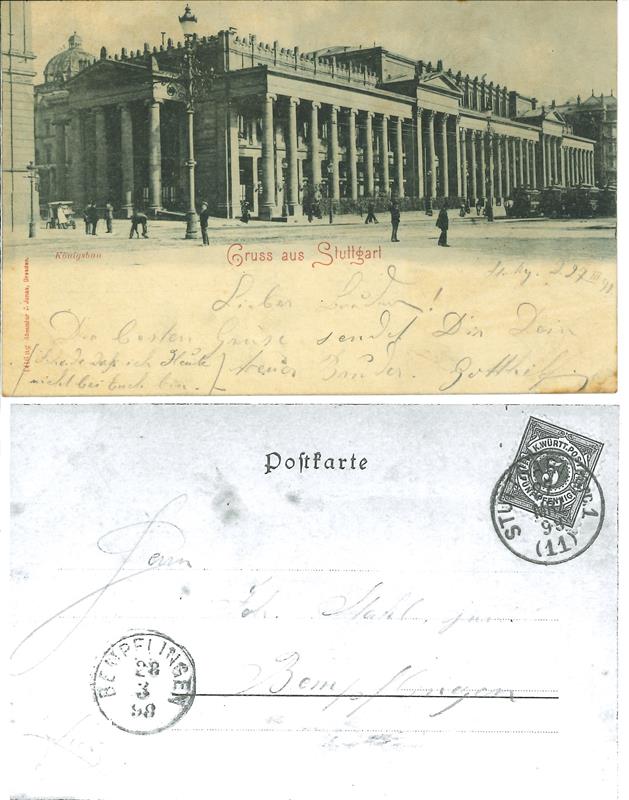 Königsbau
Gruss aus Stuttgart
Stuttg. d. 27 III 98
Lieber Bruder!
Die besten Grüsse sendet Dir Dein
(Schade daß ich Heute
treuer Bruder. Gotthilf
nicht bei Euch bin.)
Postkarte
K. WÜRTT. POST
5
FÜNF PFENNIG
STUTTGART No. 1
98
(11)
Herrn
Joh. Stahl, junior
Bempflingen
BEMPFLINGEN
28
3
98